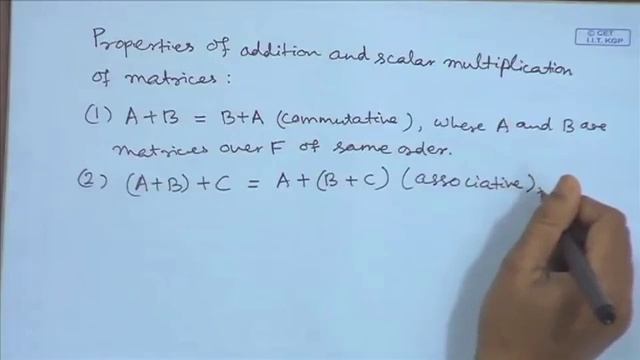 © CET
I.I.T. KGP
Properties of addition and scalar multiplication
of matrices :
(1) A+B = B+A (commutative), where A and B are
matrices over F of same order.
(2) (A+B)+C = A+(B+C) (associative),